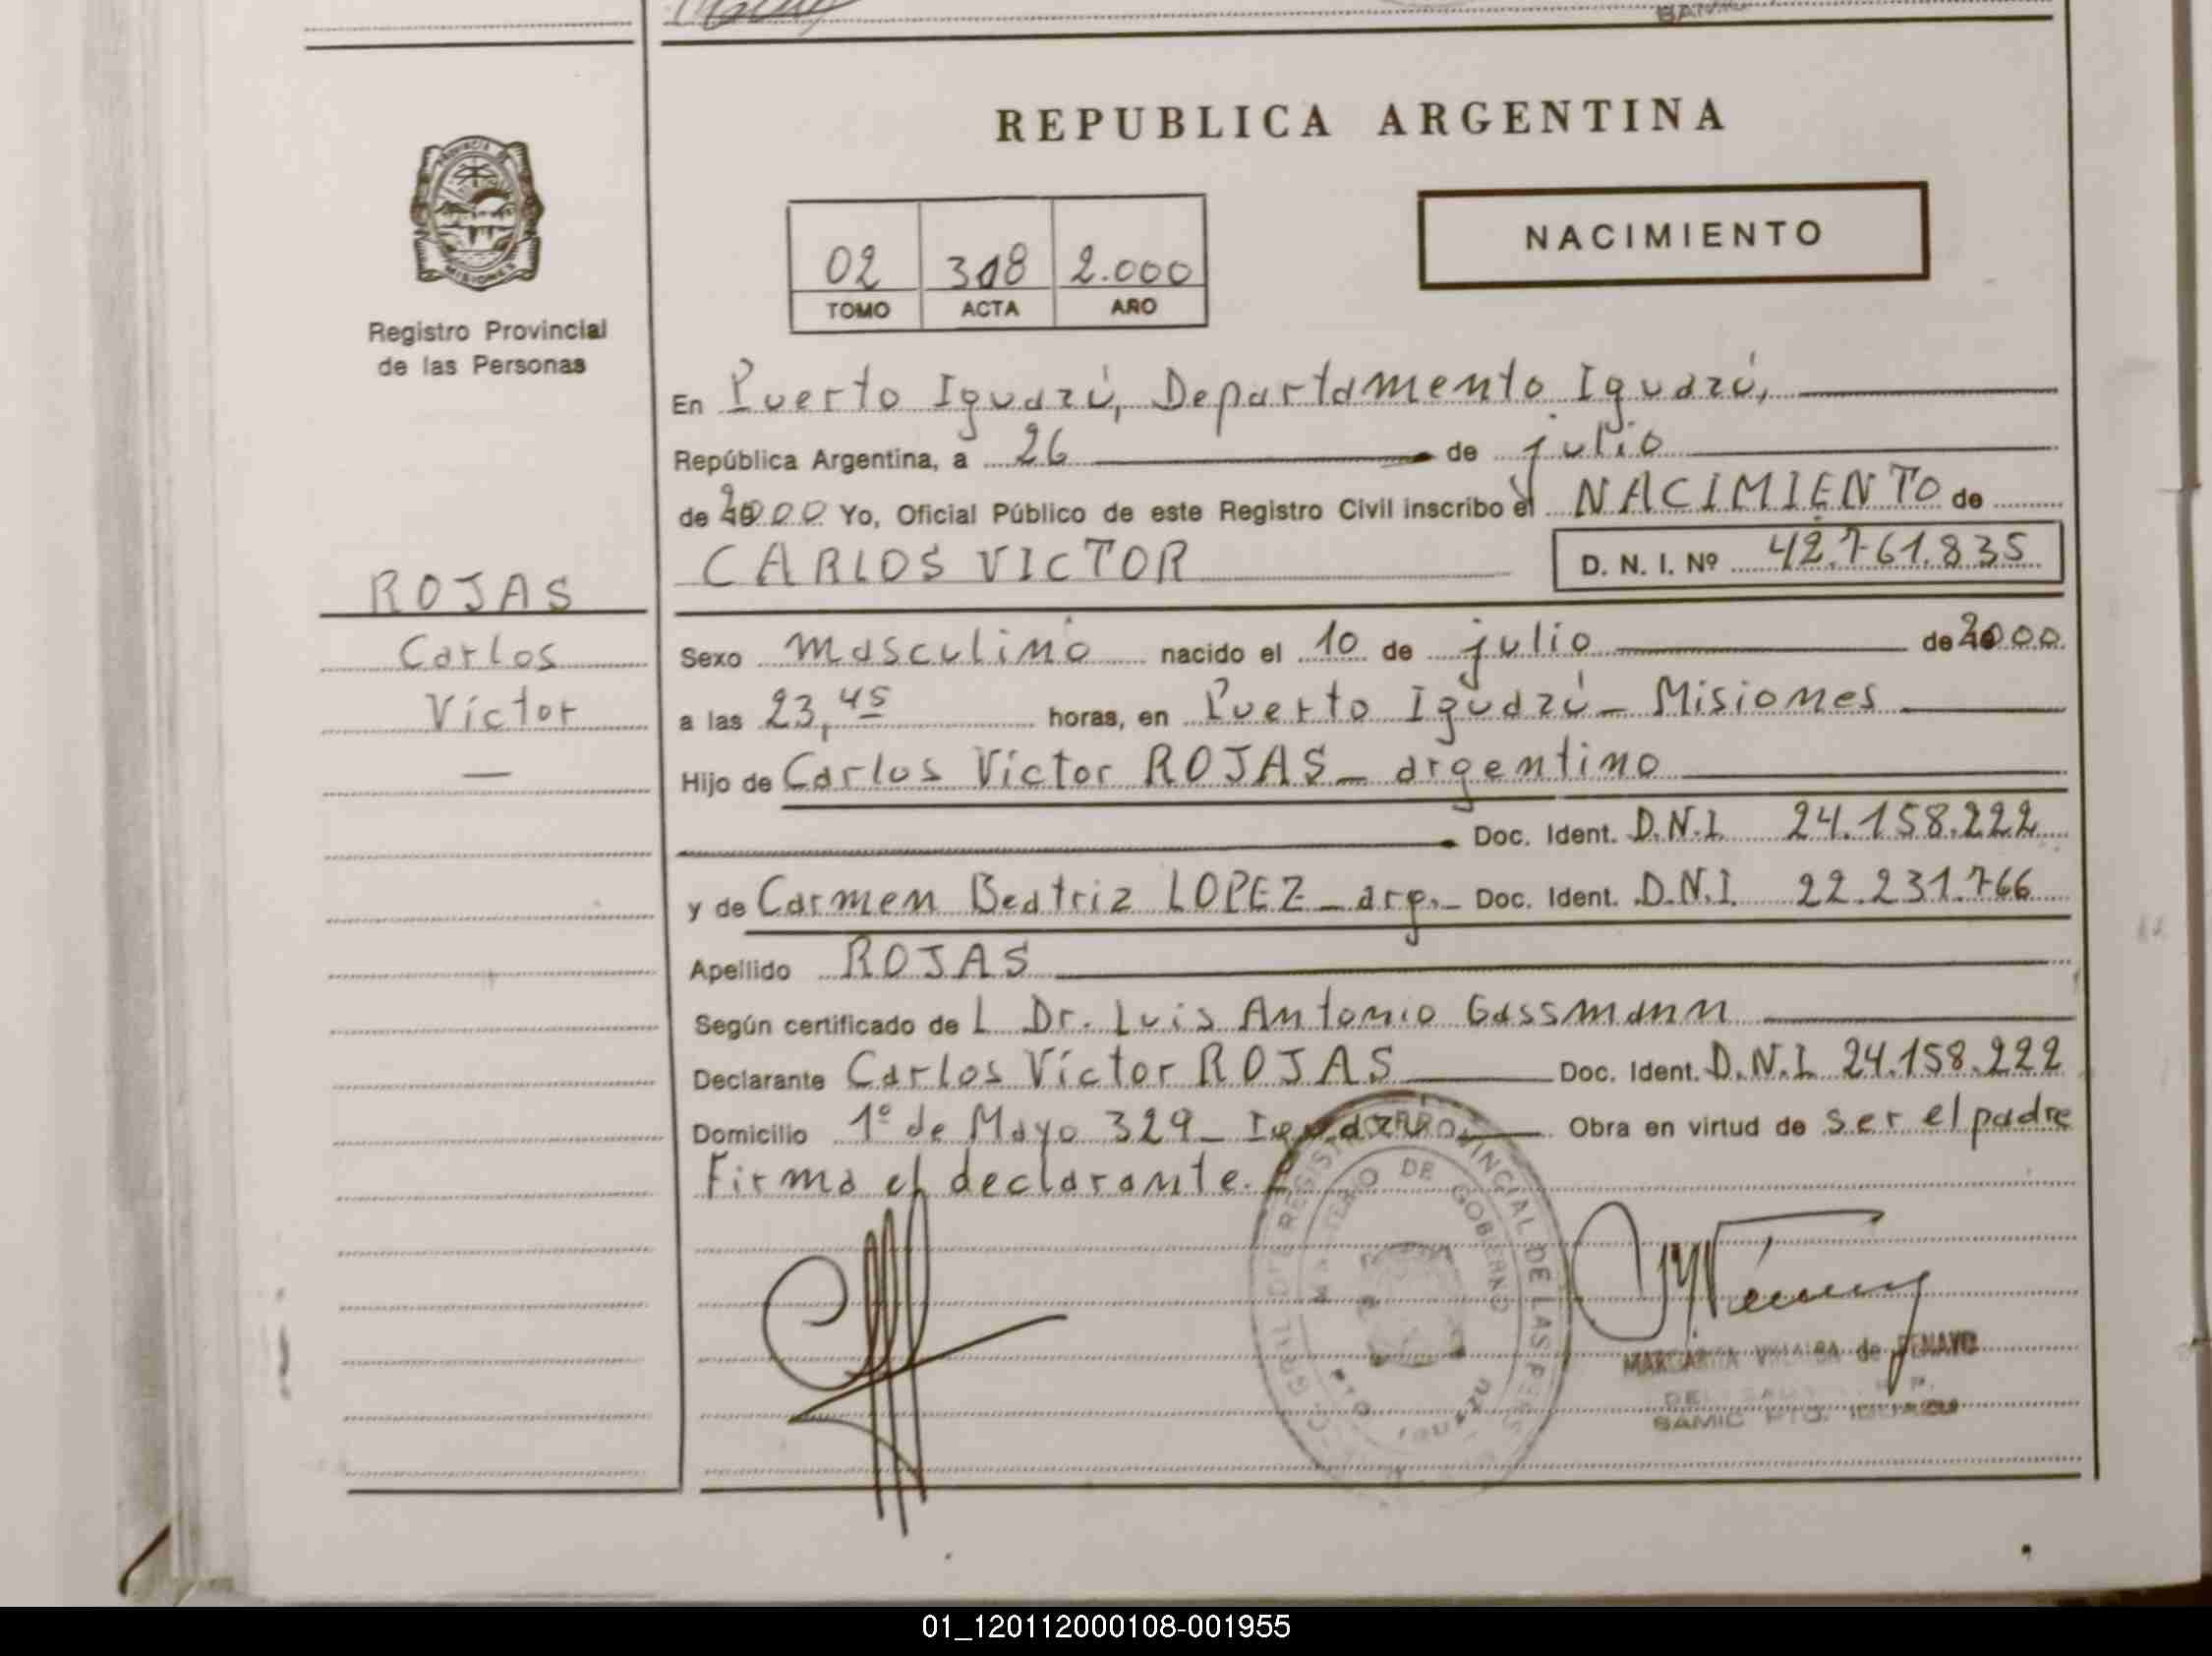 REPUBLICA ARGENTINA
NACIMIENTO
02 308 2.000
TOMO ACTA AÑO
PROVINCIA DE
MISIONES
Registro Provincial
de las Personas
En Puerto Iguazú, Departamento Iguazú,
República Argentina, a 26 de julio
de 2000 Yo, Oficial Público de este Registro Civil inscribo el NACIMIENTO de
CARLOS VICTOR D. N. I. Nº 42.761.835
ROJAS
Carlos
Víctor
Sexo masculino nacido el 10 de julio de 2000.
a las 23,45 horas, en Puerto Iguazú - Misiones
Hijo de Carlos Víctor ROJAS - argentino
Doc. Ident. D.N.I. 24.158.222
y de Carmen Beatriz LOPEZ - arg. - Doc. Ident. D.N.I. 22.231.766
Apellido ROJAS
Según certificado de L Dr. Luis Antonio Gassmann
Declarante Carlos Víctor ROJAS Doc. Ident. D.N.I. 24.158.222
Domicilio 1º de Mayo 329 - Iguazú Obra en virtud de ser el padre
Firma el declarante.
PROVINCIAL DE LAS PERS
DE GOBIERNO
PTO IGUAZU
MARGARITA VILLALBA de PENAYO
SAMIC PTO. IGUAZU
01_120112000108-001955